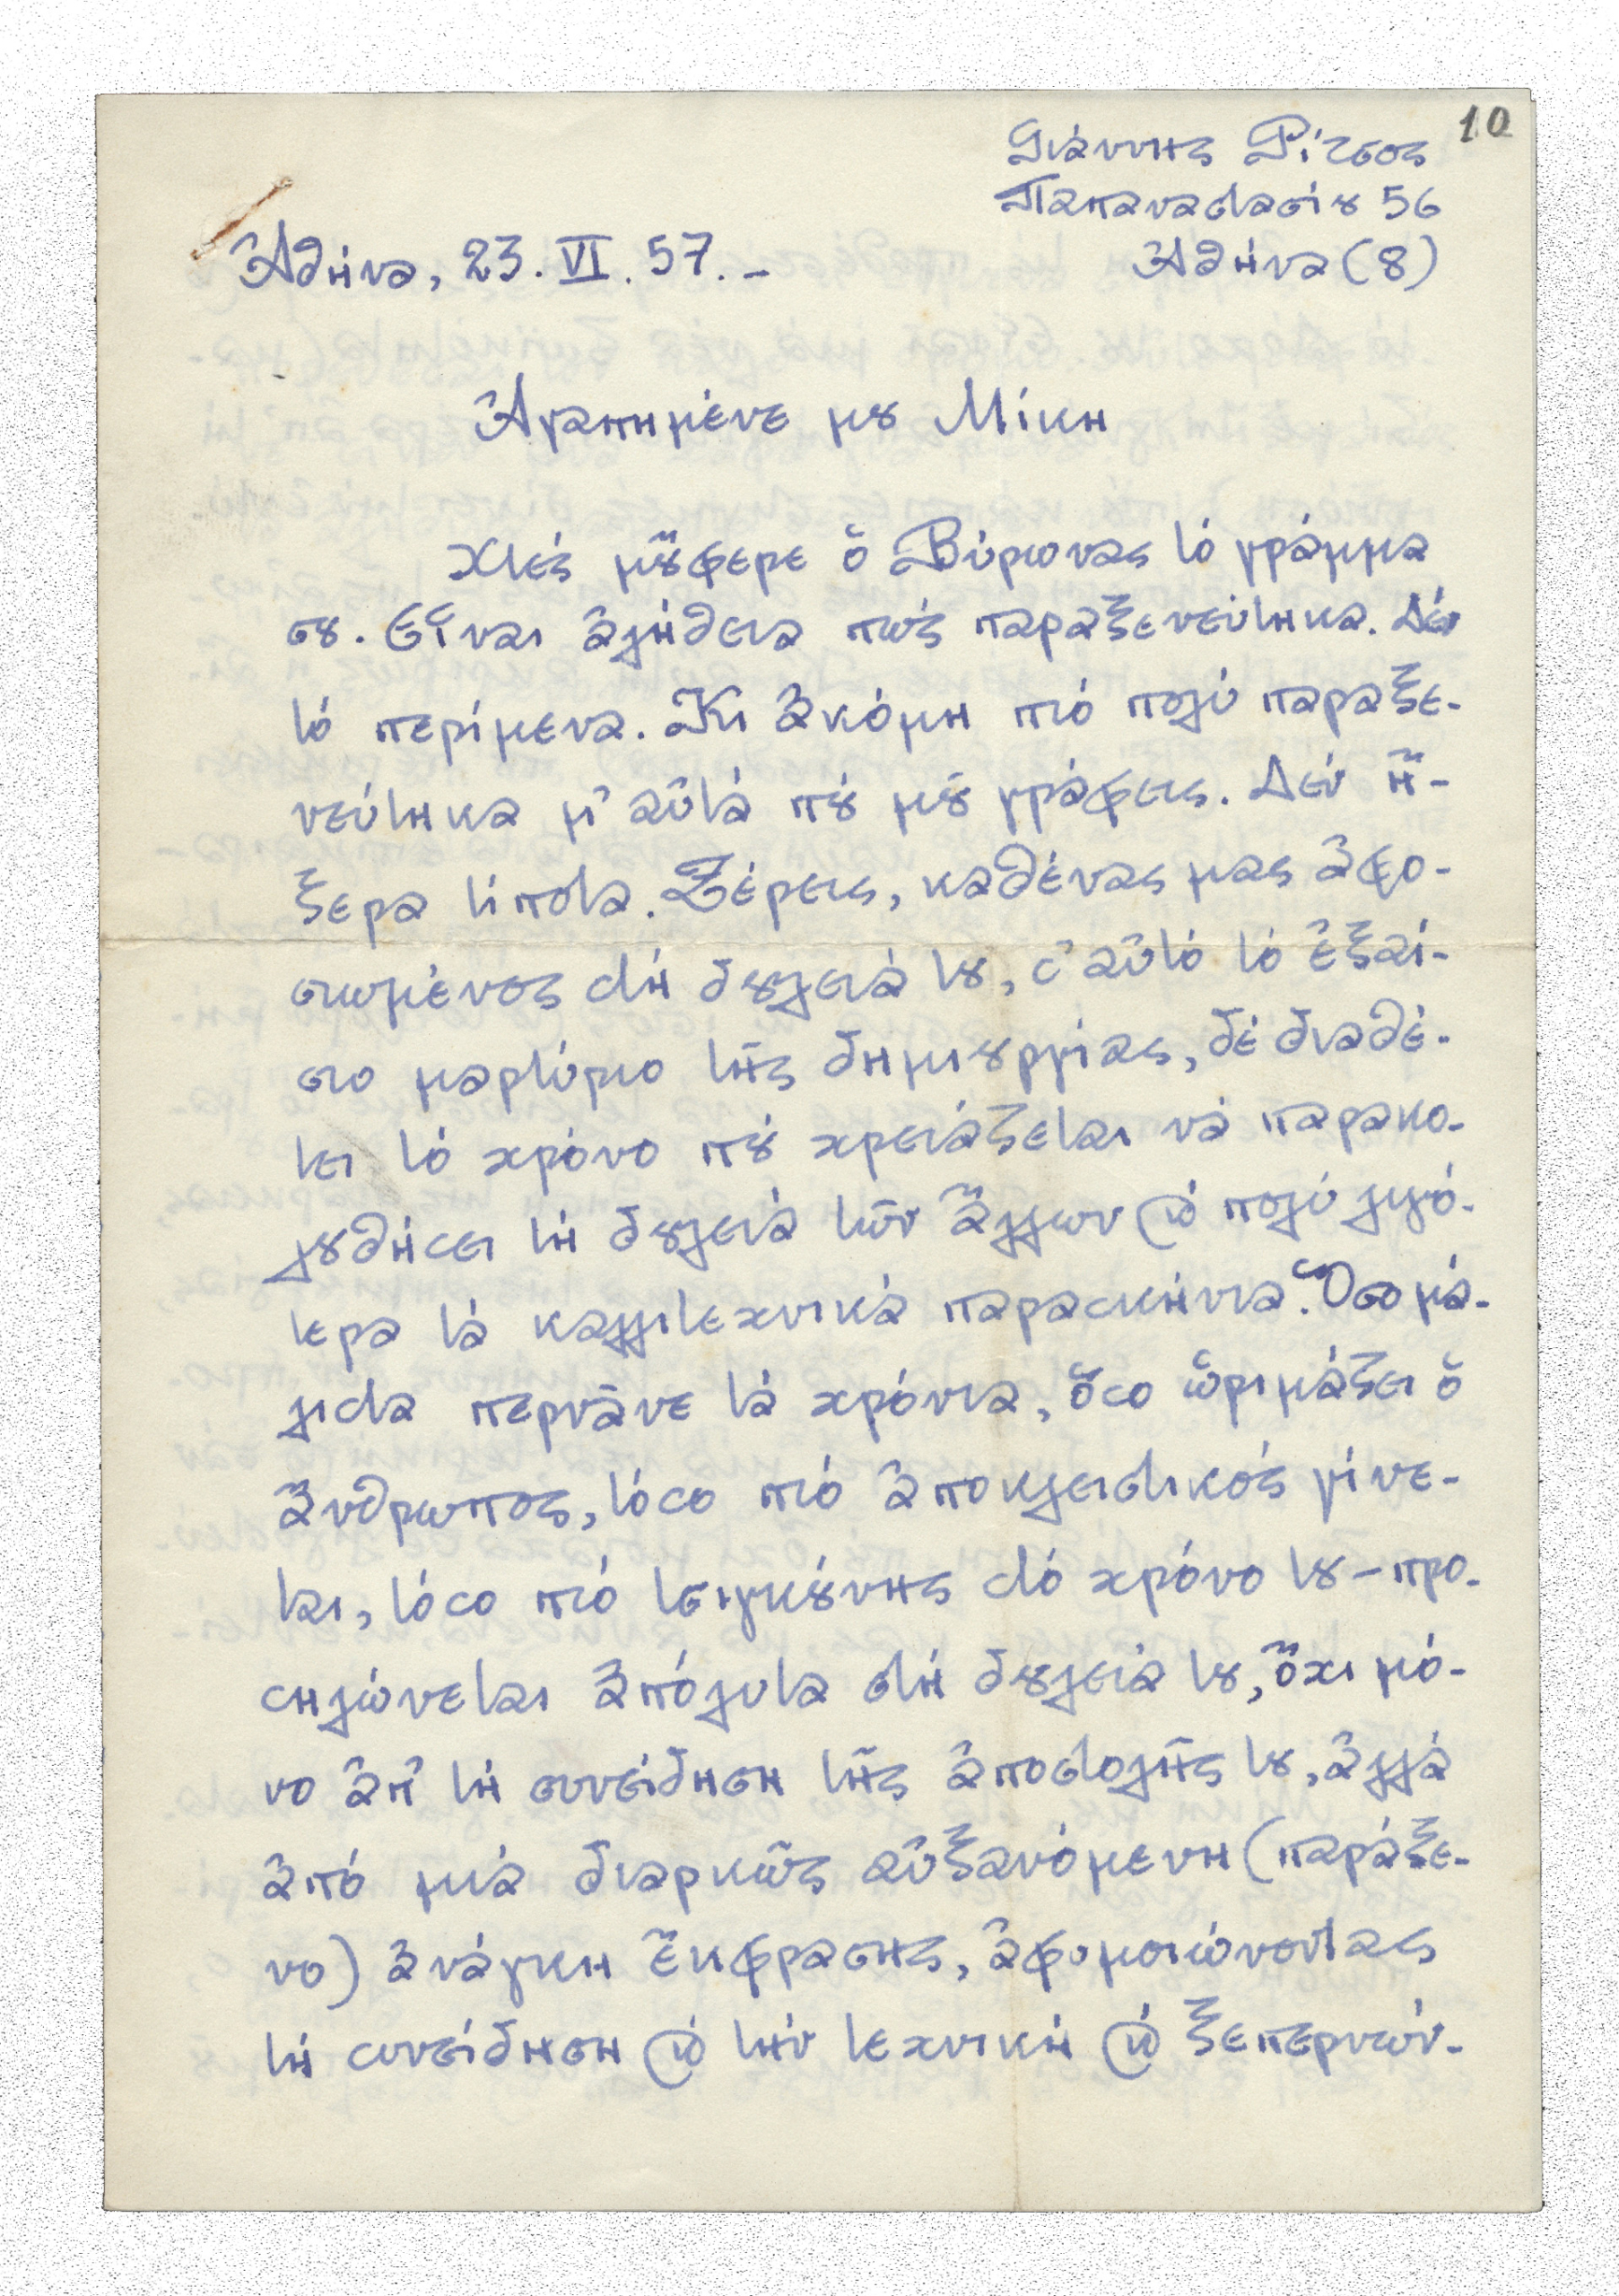 10
Γιάννης Ρίτσος
Παπαναστασίου 56
Ἀθήνα, 23. VI. 57. –
Ἀθήνα (8)
Ἀγαπημένε μου Μίκη
Χτές μοὔφερε ὁ Βύρωνας τό γράμμα
σου. Εἶναι ἀλήθεια πώς παραξενεύτηκα. Δέν
τό περίμενα. Κι ἀκόμη πιό πολύ παραξε-
νεύτηκα μ' αὐτά πού μοῦ γράφεις. Δέν ἤ-
ξερα τίποτα. Ξέρεις, καθένας μας ἀφο-
σιωμένος στή δουλειά του, σ' αὐτό τό ἐξαί-
σιο μαρτύριο τῆς δημιουργίας, δέ διαθέ-
τει τό χρόνο πού χρειάζεται νά παρακο-
λουθήσει τή δουλειά τῶν ἄλλων καί πολύ λιγό-
τερα τά καλλιτεχνικά παρασκήνια. Ὅσο μά-
λιστα περνᾶνε τά χρόνια, ὅσο ὡριμάζει ὁ
ἄνθρωπος, τόσο πιό ἀποκλειστικός γίνε-
ται, τόσο πιό τσιγκούνης στό χρόνο του – προ-
σηλώνεται ἀπόλυτα στή δουλειά του, ὄχι μό-
νο ἀπ' τή συνείδηση τῆς ἀποστολῆς του, ἀλλά
ἀπό μιά διαρκῶς αὐξανόμενη (παράξε-
νο) ἀνάγκη ἔκφρασης, ἀφομοιώνοντας
τή συνείδηση καί τήν τεχνική καί ξεπερνών-